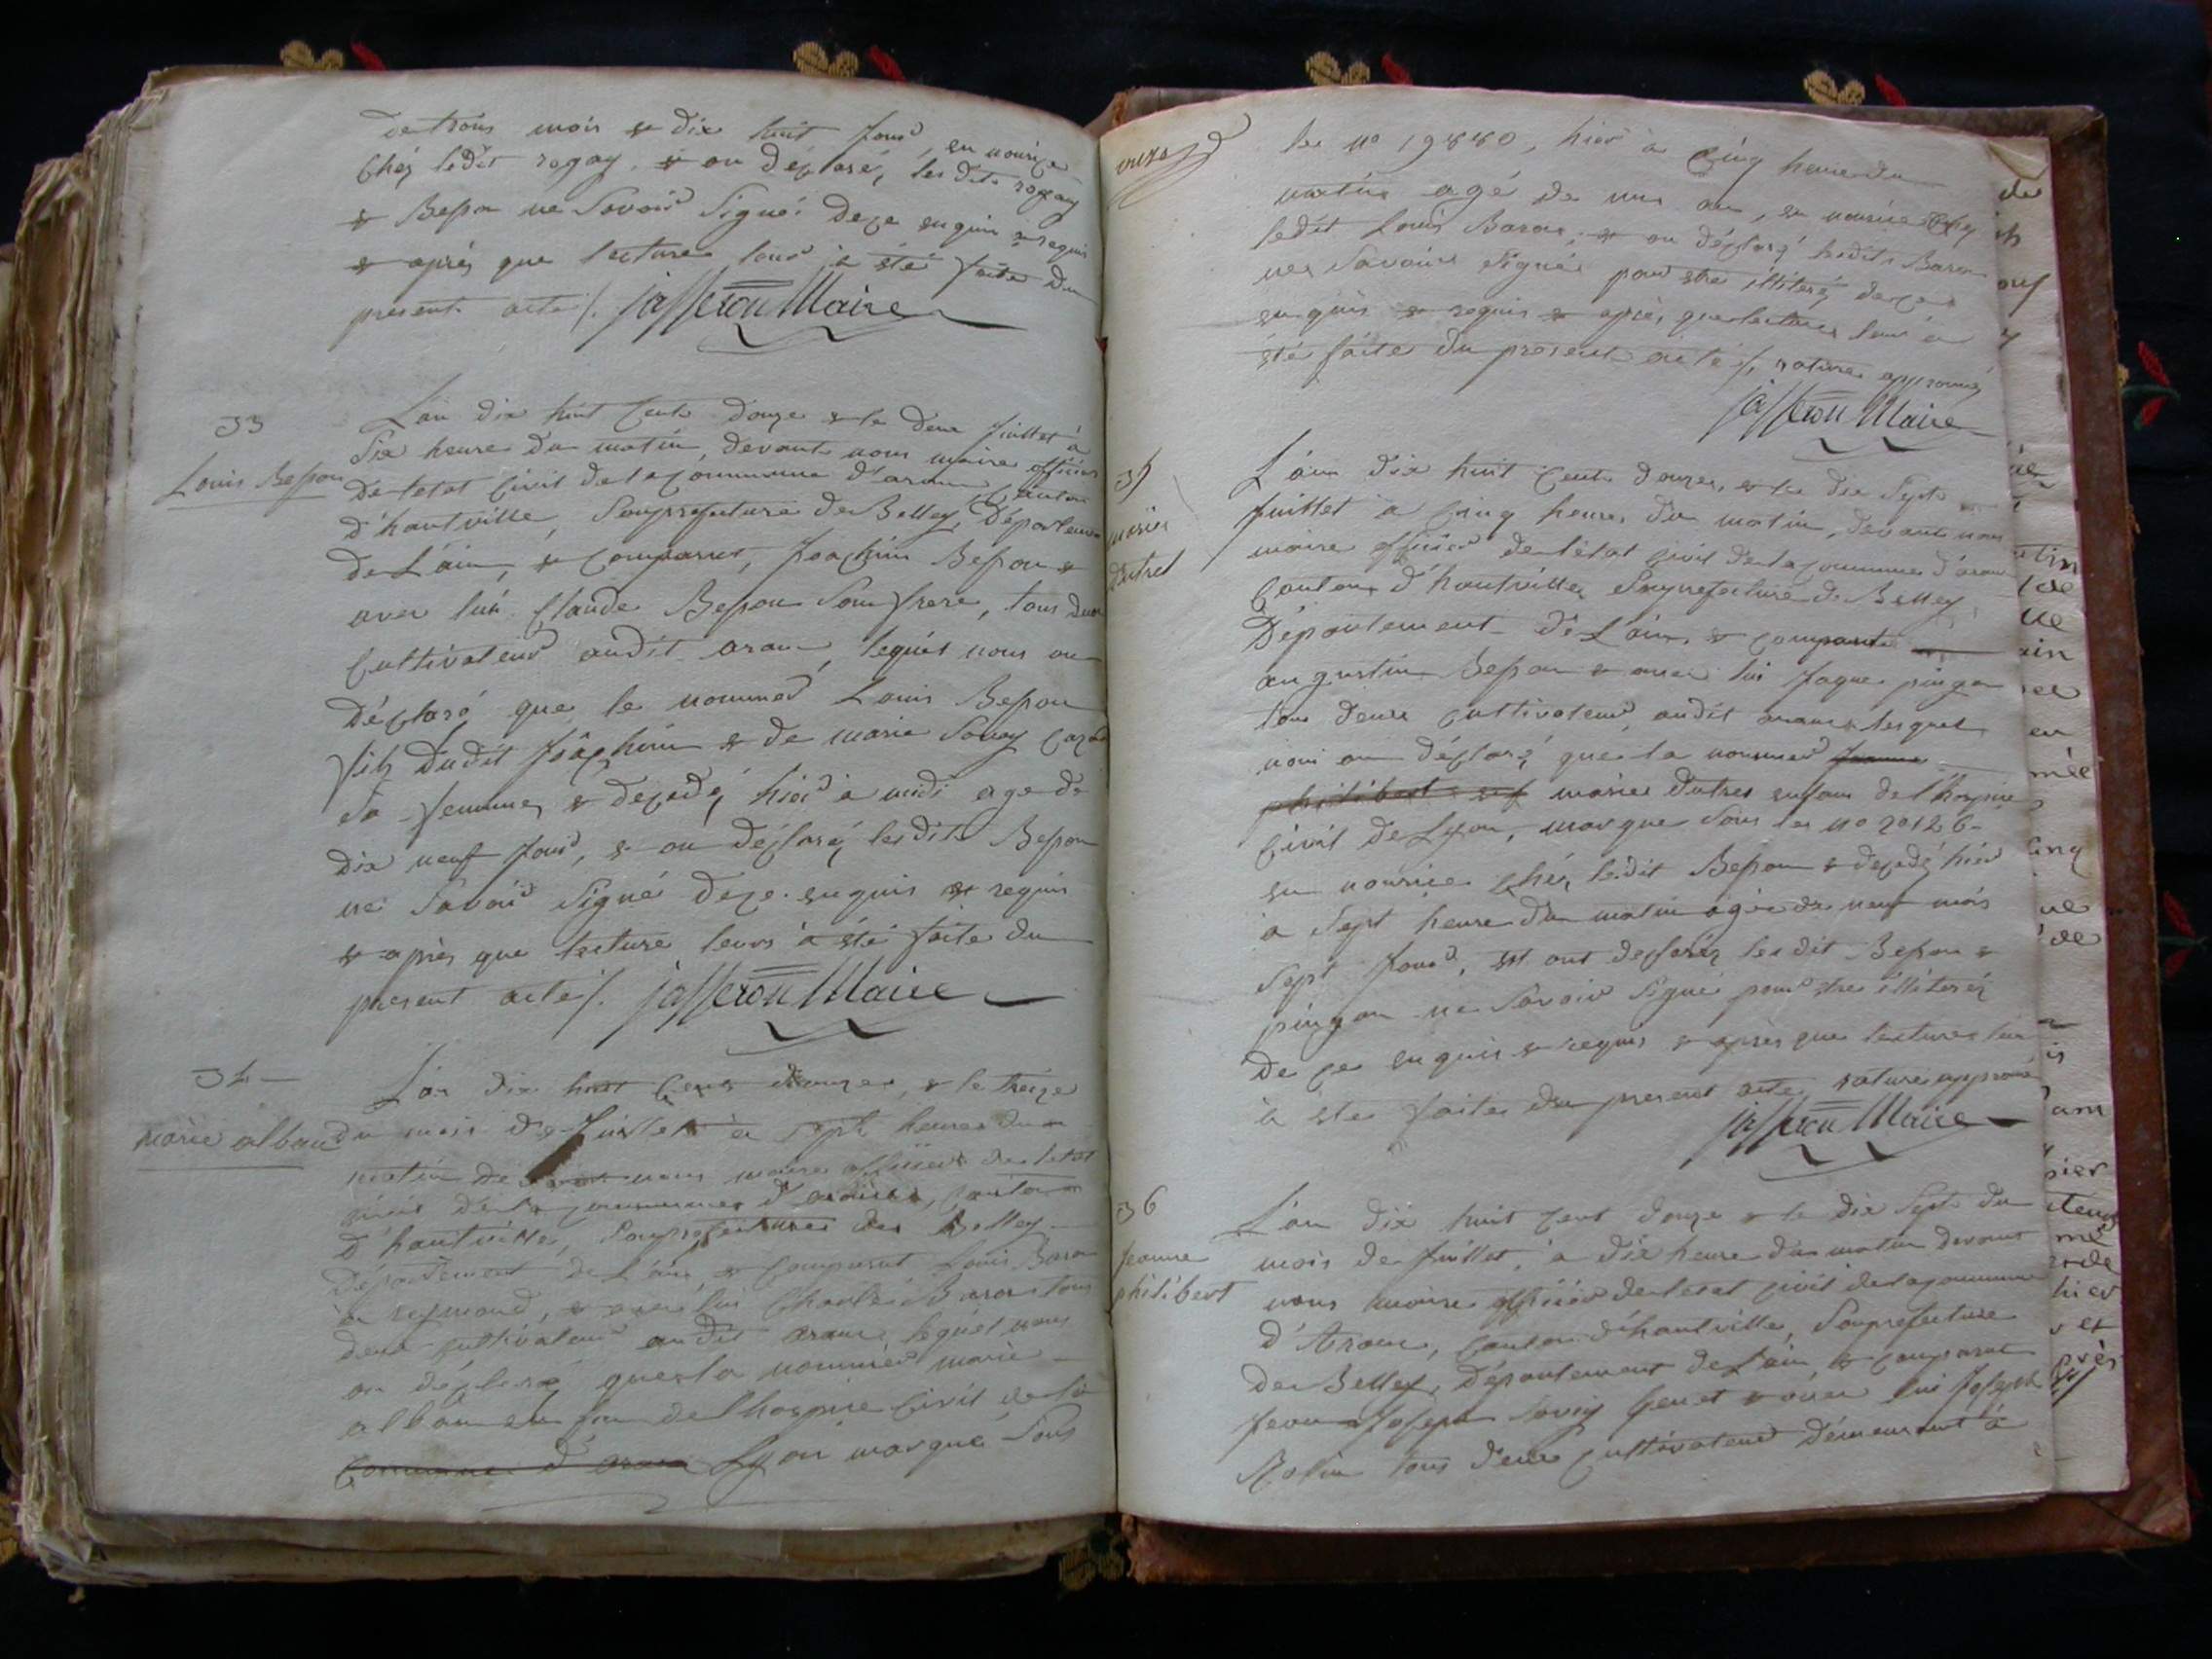 de trois mois & dix huit jour, en nourice
chéz ledit rogay, & on déclaré, les dits rogay
& Besson ne savoir signé de ce enquis & requis
& après que lecture leur à été faite du
present acte /. jasseron Maire
33
Louis Besson
Lan dix huit cents douze & le deux juillet à
six heure du matin, devant nous maire officier
de letat civil de la commune d'aranc, canton
d'hautville, souprefecture de Belley, département
de Lain, & comparut, joachim Besson &
avec lui Claude Besson son frere, tous deux
cultivateur audit aranc, lequel nous on
déclaré que le nommé Louis Besson
fils dudit joâchim & de marie
sa femme, & décédé, hier à midi age de
dix neuf jour, & on déclaré, lesdits Besson
ne savoir signé de ce enquis & requis
& après que lecture leurs à été faite du
present acte /. jasseron Maire
34
marie alban
Lan dix huit cent douze, & le treize
du mois de juillet à sept heures du
matin devant nous maire officier de letat
civil de la commune d'aranc, canton
d'hautville, souprefecture de Belley
département de Lain, & comparut Louis Baron
à reymond, & avec lui Charle Baron tous
deux cultivateur audit aranc, lequel nous
on déclaré que la nommée marie
alban en fan de lhospice civil de la
commune d'aranc Lyon marqué sous
le no 19880, hier à cinq heure du
matin agé de un an, en nourice chez
ledit Louis Baron, & on déclaré lesdits Baron
ne savoir signé pour etre illiteré, de ce
enquis & requis & après que lecture leur à
été faite du present acte /. rature approuvé
jasseron Maire
35
marie
dutret
L'an dix huit cents douze, & le dix sept
juillet à cinq heures du matin, devant nous
maire officier de l'état civil de la commune d'aranc
canton d'hautville, souprefecture de Belley,
Département de L'ain, & comparut
augustin Besson & avec lui jaque pingon
tous deux cultivateur audit aranc lesquel
nous on déclaré que la nommé jeanne
philibert marie dutret enfan de l'hospice
civil de Lyon, marque sous le no 20126
en nourice chéz ledit Besson & décédé hier
à sept heure du matin agée de neuf mois
sept jour, et ont declaréz les dit Besson &
pingon ne savoir signé pour etre illiteréz
de ce enquis & requis & après que lecture leur
à été faite du present acte rature approuvé
jasseron Maire
36
jeanne
philibert
L'an dix huit cent douze & le dix sept du
mois de juillet, à dix heure du matin devant
nous maire officier de letat civil de la commune
d'Aranc, canton d'hautville, souprefecture
de Belley, département de Lain & comparut
jean Joseph savey genet & avec lui Joseph
Rolin tous deux cultivateur demeurant à